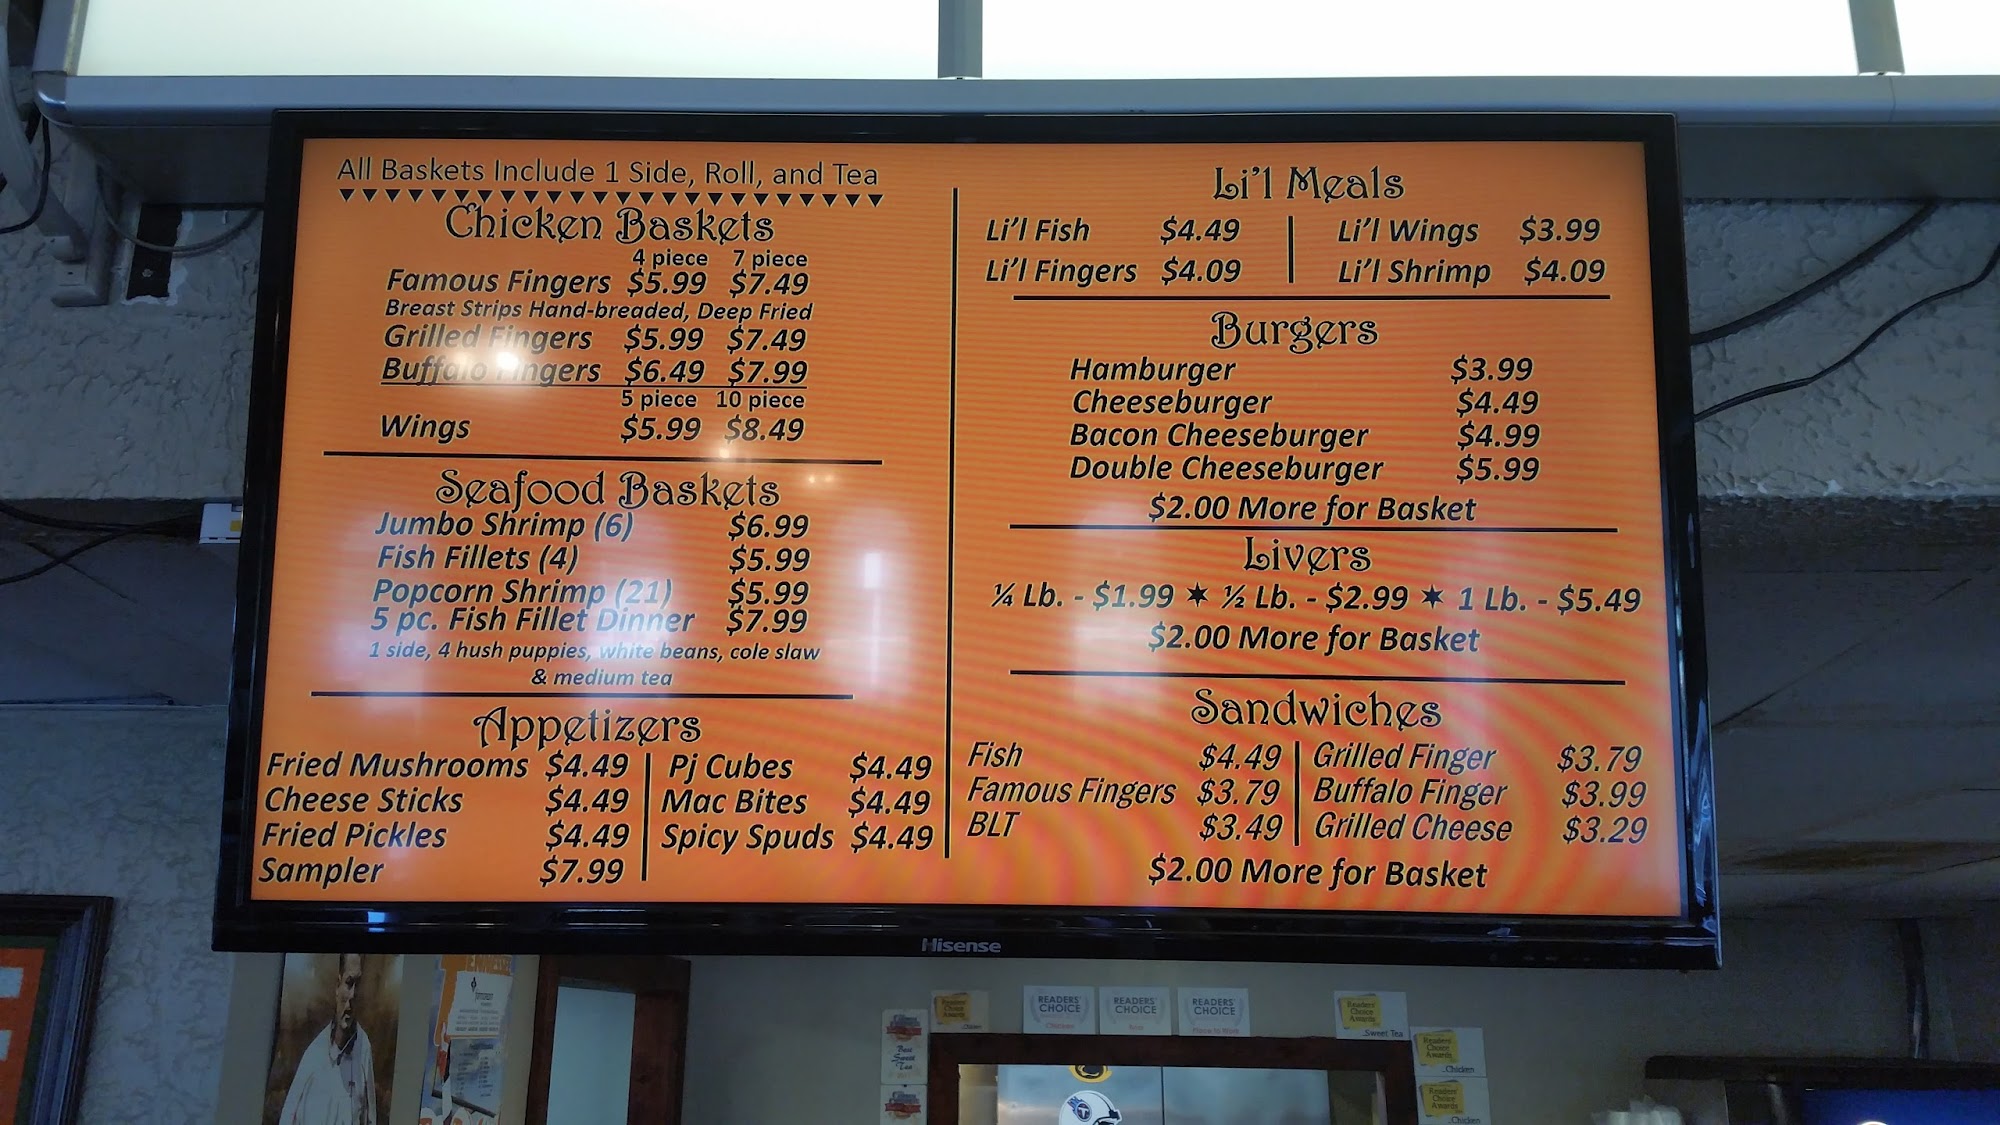 All Baskets Include 1 Side, Roll, and Tea
Chicken Baskets
4 piece 7 piece
Famous Fingers $5.99 $7.49
Breast Strips Hand-breaded, Deep Fried
Grilled Fingers $5.99 $7.49
Buffalo Fingers $6.49 $7.99
5 piece 10 piece
Wings $5.99 $8.49
Seafood Baskets
Jumbo Shrimp (6) $6.99
Fish Fillets (4) $5.99
Popcorn Shrimp (21) $5.99
5 pc. Fish Fillet Dinner $7.99
1 side, 4 hush puppies, white beans, cole slaw
& medium tea
Appetizers
Fried Mushrooms $4.49
Cheese Sticks $4.49
Fried Pickles $4.49
Sampler $7.99
Pj Cubes $4.49
Mac Bites $4.49
Spicy Spuds $4.49
Li'l Meals
Li'l Fish $4.49
Li'l Fingers $4.09
Li'l Wings $3.99
Li'l Shrimp $4.09
Burgers
Hamburger $3.99
Cheeseburger $4.49
Bacon Cheeseburger $4.99
Double Cheeseburger $5.99
$2.00 More for Basket
Livers
¼ Lb. - $1.99 ✶ ½ Lb. - $2.99 ✶ 1 Lb. - $5.49
$2.00 More for Basket
Sandwiches
Fish $4.49
Famous Fingers $3.79
BLT $3.49
Grilled Finger $3.79
Buffalo Finger $3.99
Grilled Cheese $3.29
$2.00 More for Basket
Hisense
READERS'
CHOICE
Chicken
READERS'
CHOICE
READERS'
CHOICE
Readers'
Choice
Awards
Readers'
Choice
Awards
...Sweet Tea
Readers'
Choice
Awards
...Chicken
Readers'
Choice
Awards
...Chicken
Best
Sweet
Tea